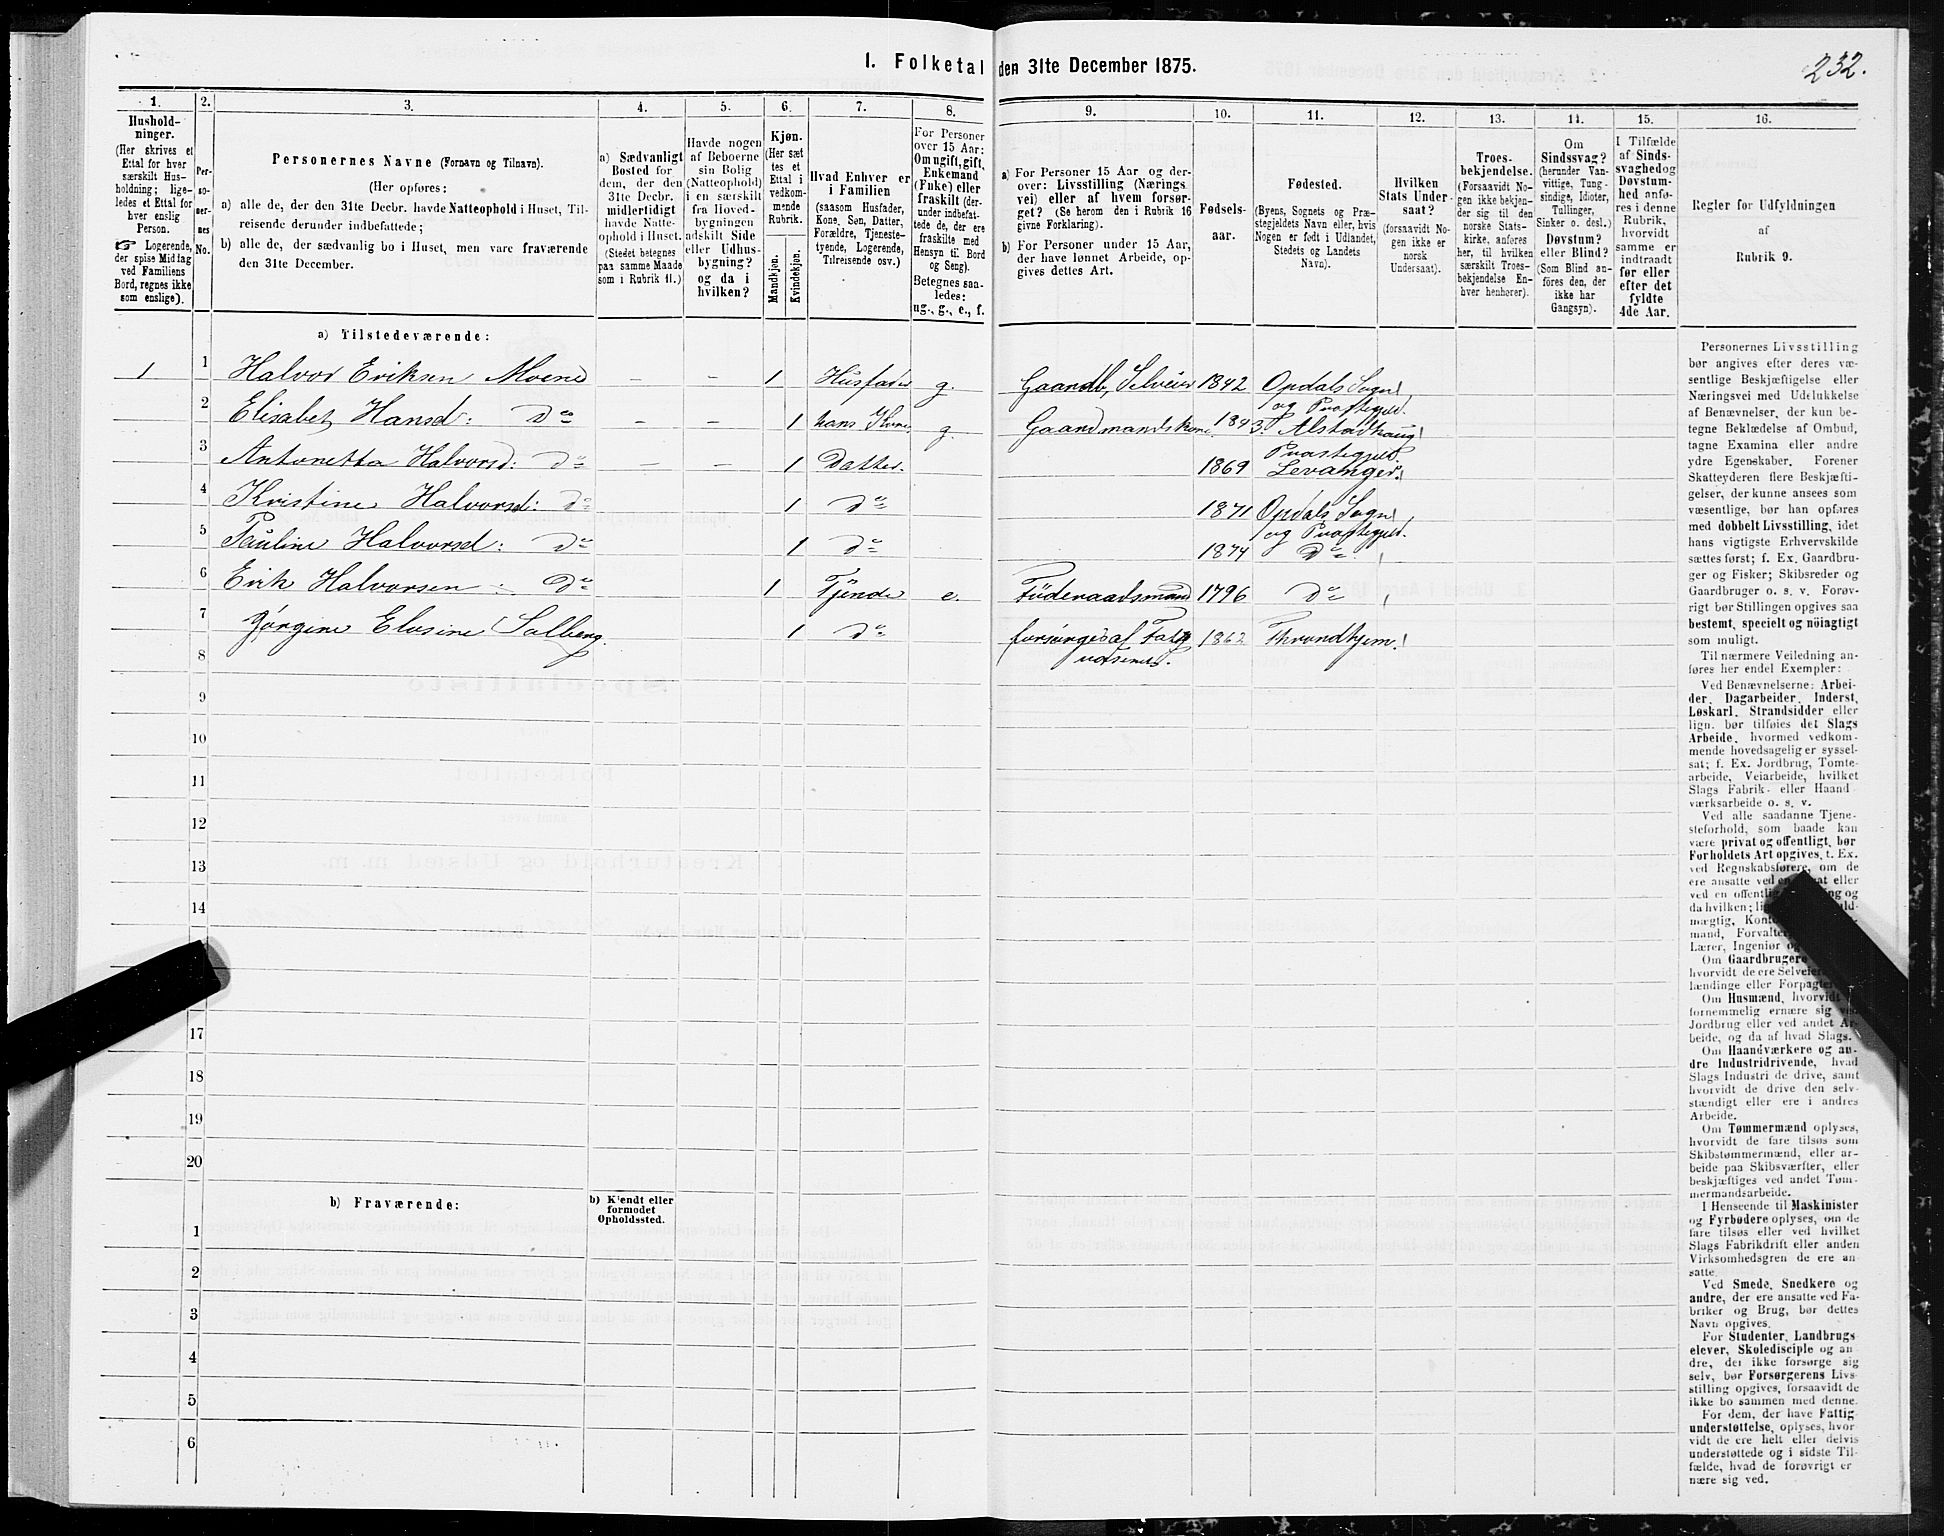 232.
1. Folketal den 31te December 1875.
1.
Hushold-
ninger.
(Her skrives et
Ettal for hver
særskilt Hus-
holdning; lige-
ledes et Ettal for
hver enslig
Person.
☞ Logerende,
der spise Middag
ved Familiens
Bord, regnes ikke
som enslige).
2.
Per-
so-
ner-
nes
No.
3.
Personernes Navne (Fornavn og Tilnavn).
(Her opføres:
a) alle de, der den 31te Decbr. havde Natteophold i Huset, Til-
reisende derunder indbefattede;
b) alle de, der sædvanlig bo i Huset, men vare fraværende
den 31te December.
4.
a) Sædvanligt
Bosted for
dem, der den
31te Decbr.
midlertidigt
havde Natte-
ophold i Huset.
(Stedet betegnes
paa samme Maade
som i Rubrik 11.)
5.
Havde nogen
af Beboerne
sin Bolig
(Natteophold)
i en særskilt
fra Hoved-
bygningen
adskilt Side
eller Udhus-
bygning?
og da i
hvilken?
6.
Kjøn.
(Her sæt
tes et
Ettal i
vedkom-
mende
Rubrik.
Mandkjøn.
Kvindekjøn.
7.
Hvad Enhver er
i Familien
(saasom Husfader,
Kone, Søn, Datter,
Forældre, Tjeneste-
tyende, Logerende,
Tilreisende osv.)
8.
For Personer
over 15 Aar:
Om ugift, gift,
Enkemand
(Enke) eller
fraskilt (der-
under indbefat-
tede de, der ere
fraskilte med
Hensyn til Bord
og Seng).
Betegnes saa-
ledes:
ug., g., e., f.
9.
a) For Personer 15 Aar og der-
over: Livsstilling (Nærings
vei) eller af hvem forsør-
get? (Se herom den i Rubrik 16
givne Forklaring).
b) For Personer under 15 Aar,
der have lønnet Arbeide, op-
gives dettes Art.
10.
Fødsels-
aar.
11.
Fødested.
(Byens, Sognets og Præ-
stegjeldets Navn eller, hvis
Nogen er født i Udlandet,
Stedets og Landets
Navn).
12.
Hvilken
Stats Under-
saat?
(forsaavidt No-
gen ikke er
norsk
Undersaat).
13.
Troes-
bekjendelse.
(Forsaavidt No-
gen ikke bekjen-
der sig til den
norske Stats-
kirke, anføres
her, til hvilken
særskilt Troes-
bekjendelse En-
hver henhører).
14.
Om
Sindssvag?
(herunder Van-
vittige, Tung-
sindige, Idioter,
Tullinger,
Sinker o. desl.)
Døvstum?
eller Blind?
(Som Blind an-
føres den, der
ikke har
Gangsyn).
15.
I Tilfælde
af Sinds-
svaghed og
Døvstum-
hed anfø-
res i denne
Rubrik,
hvorvidt
samme er
indtraadt
før eller
efter det
fyldte
4de Aar.
16.
Regler for Udfyldningen
af
Rubrik 9.
a) Tilstedeværende:
1 1 Halvor Eriksen Moene - - 1 Husfader g. Gaardb, Selveier 1842 Opdals Sogn
og Præstegjeld.
2 Elisabet Hansd: Do - - 1 hans Kone g. Gaardmandskone. 1843. Alstadhaug
Præstegjeld.
3 Antonetta Halvorsd: Do - - 1 Datter. 1869 Levanger.
4 Kristine Halvorsd: Do 1 Do 1871 Opdals Sogn
og Præstegjeld.
5 Pauline Halvorsd: Do 1 Do 1874 Do
6 Erik Halvorsen : Do 1 Tjende e. Føderaadsmand 1796 Do
7 Gørgine Elusine Solberg. 1 Do forsørges af Fatig
væsenet. 1862 Throndhjem.
8
9
10
11
12
13
14
17
18
19
20
b) Fraværende:
b) Kjendt eller
formodet
Opholdssted.
1
2
3
4
5
6
Personernes Livsstilling
bør angives efter deres væ-
sentlige Beskjæftigelse eller
Næringsvei med Udelukkelse
af Benævnelser, der kun be-
tegne Beklædelse af Ombud,
tagne Examina eller andre
ydre Egenskaber. Forener
Skatteyderen flere Beskjæfti-
gelser, der kunne ansees som
væsentlige, bør han opføres
med dobbelt Livsstilling, idet
hans vigtigste Erhvervskilde
sættes først; f. Ex. Gaardbru-
ger og Fisker; Skibsreder og
Gaardbruger o. s. v. Forøv-
rigt bør Stillingen opgives saa
bestemt, specielt og nöiagtigt
som muligt.
Til nærmere Veiledning an-
føres her endel Exempler:
Ved Benævnelserne: Arbei-
der, Dagarbeider, Inderst,
Løskarl, Strandsidder eller
lign. bør tilføies det Slags
Arbeide, hvormed vedkom-
mende hovedsagelig er syssel-
sat; f. Ex. Jordbrug, Tomte-
arbeide, Veiarbeide, hvilket
Slags Fabrik- eller Haand-
værksarbeide o. s. v.
Ved alle saadanne Tjene-
steforhold, som baade kan
være privat og offentligt, bør
Forholdets Art opgives, t. Ex.
ved Regnskabsførere, om de
ere ansatte ved en
at eller
ved en offentlig
ng og
da hvilken;
mægtig,
mand, Forvalter
Lærer, Ingeniør
Om Gaardbrugere
hvorvidt de ere Selveiere
lændinge eller Forpagtere
Om Husmænd, hvorvidt
fornemmelig ernære sig ved
Jordbrug eller ved andet Ar-
beide, og da af hvad Slags.
Om Haandværkere og an-
dre Industridrivende, hvad
Slags Industri de drive, samt
hvorvidt de drive den selv-
stændigt eller ere i andres
Arbeide.
Om Tømmermænd oplyses,
hvorvidt de fare tilsøs som
Skibstømmermænd, eller ar-
beide paa Skibsværfter, eller
beskjæftiges ved andet Tøm-
mermandsarbeide.
I Henseende til Maskinister
og Fyrbødere oplyses, om de
fare tilsøs eller ved hvilket
Slags Fabrikdrift eller anden
Virksomhedsgren de ere an-
satte.
Ved Smede, Snedkere og
andre, der ere ansatte ved Fa-
briker og Brug, bør dettes
Navn opgives.
For Studenter, Landbrugs
elever, Skoledisciple og an-
dre, der ikke forsørge sig
selv, bør Forsørgerens Livs-
stilling opgives, forsaavidt de
ikke bo sammen med denne.
For dem, der have Fattig
understøttelse, oplyses, hvor-
vidt de ere helt eller delvis
understøttede og i sidste Til-
fælde, hvad de forøvrigt er
nære sig ved.